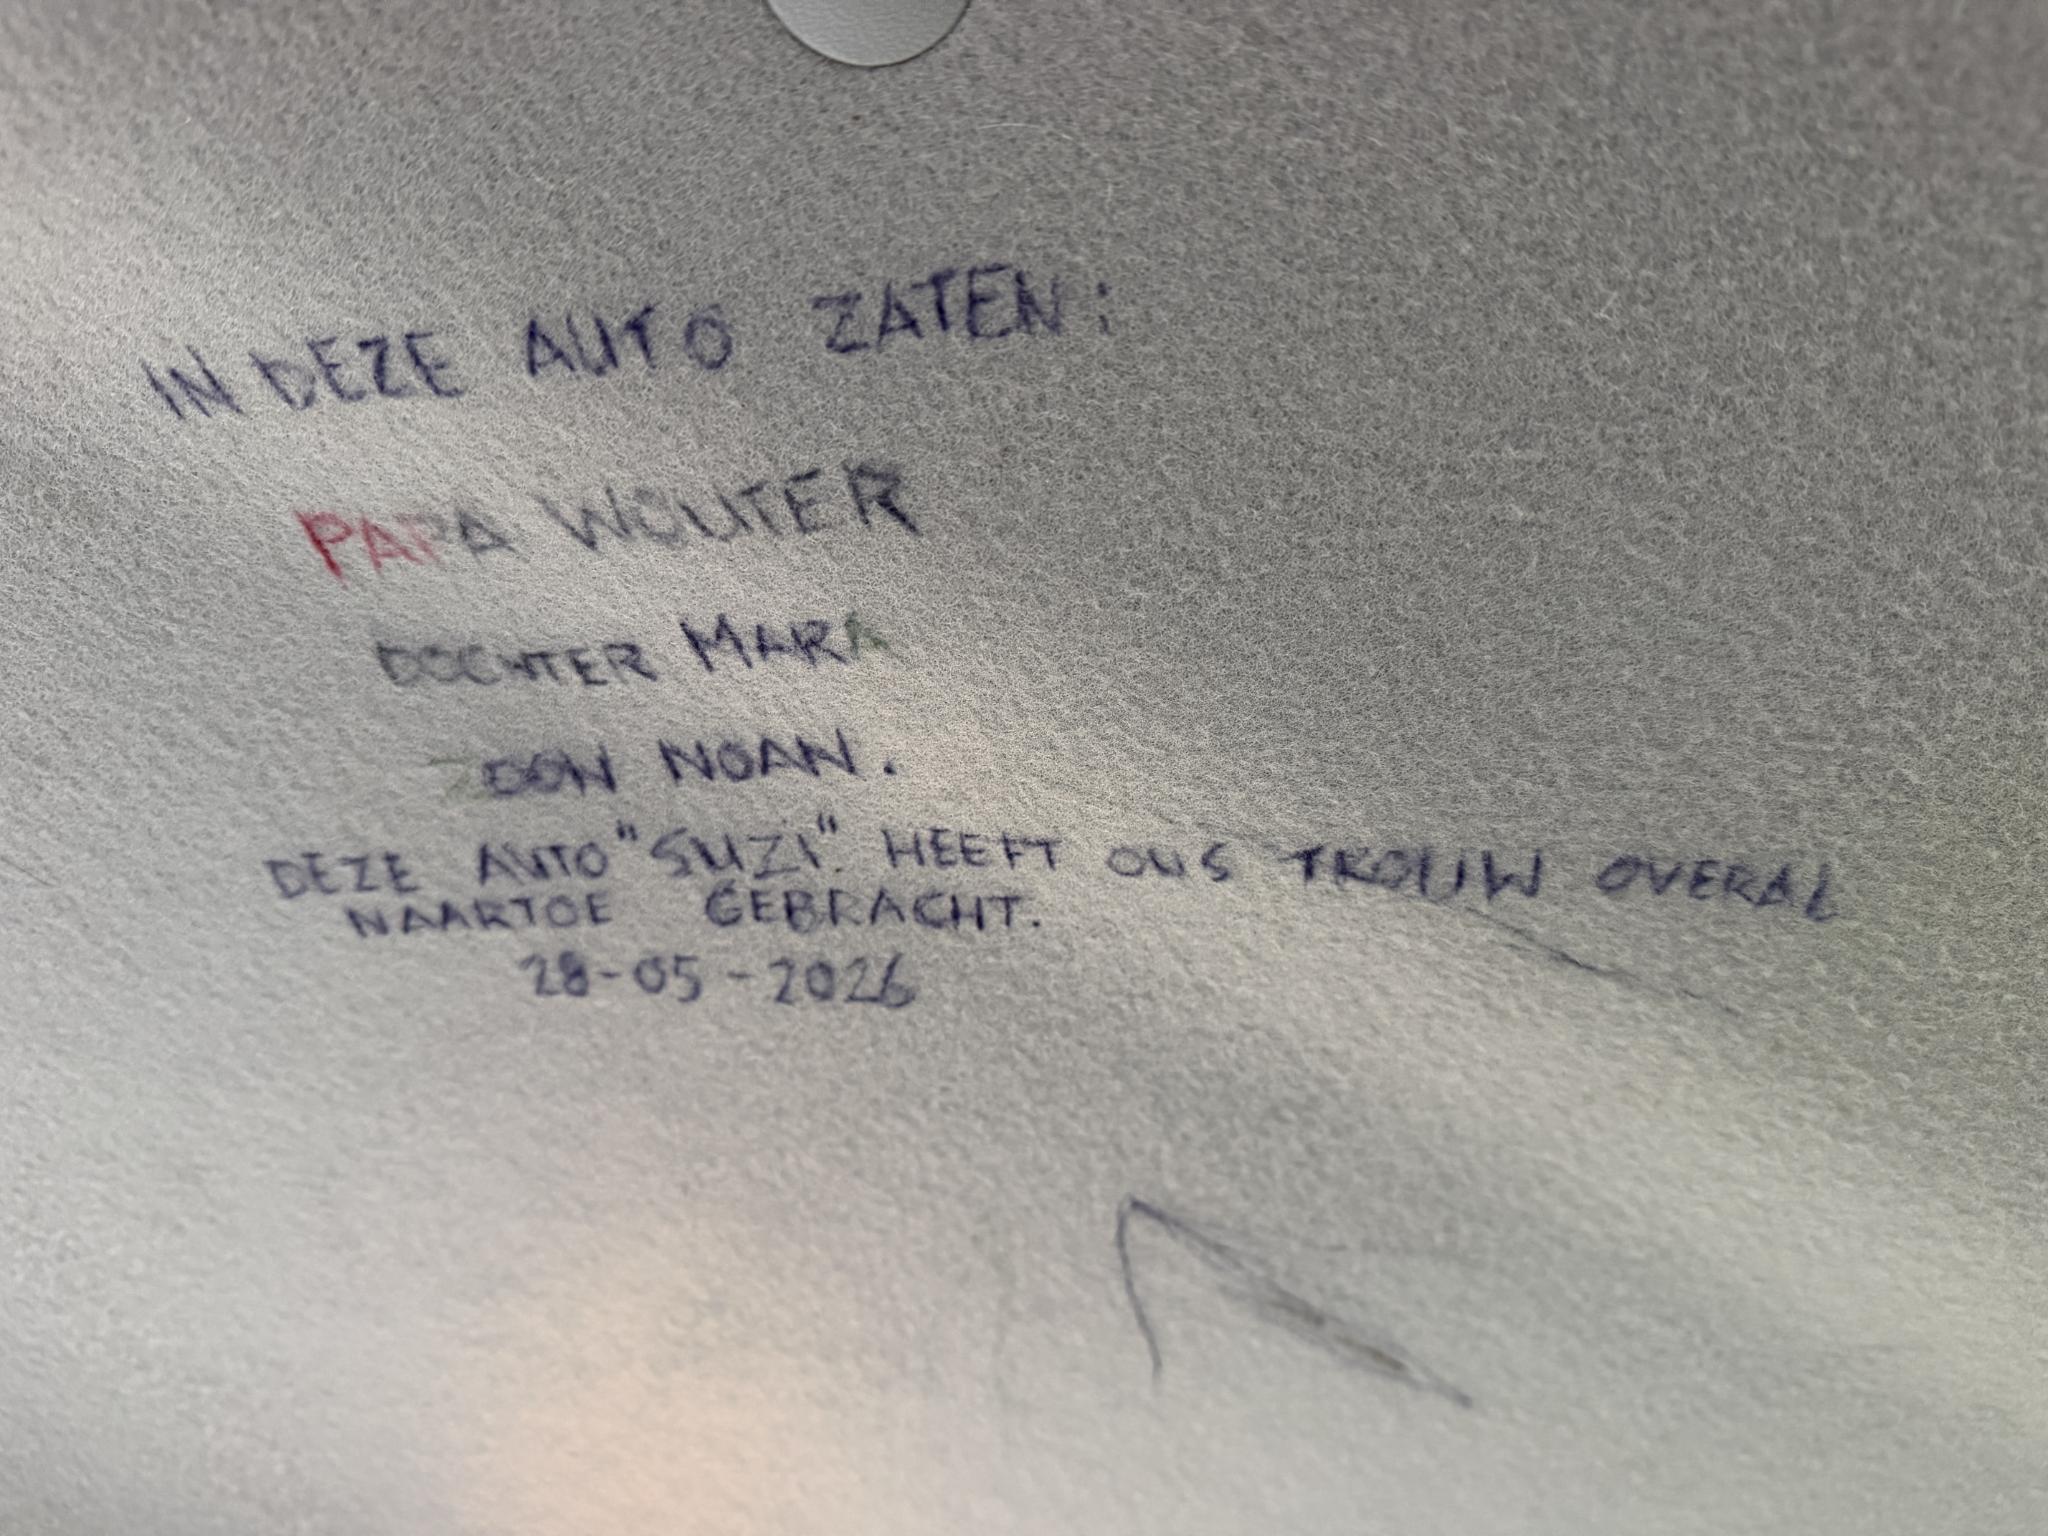 IN DEZE AUTO ZATEN:
PAPA WOUTER
DOCHTER MARA
ZOON NOAN.
DEZE AUTO "SUZI". HEEFT ONS TROUW OVERAL
NAARTOE GEBRACHT.
28-05-2026